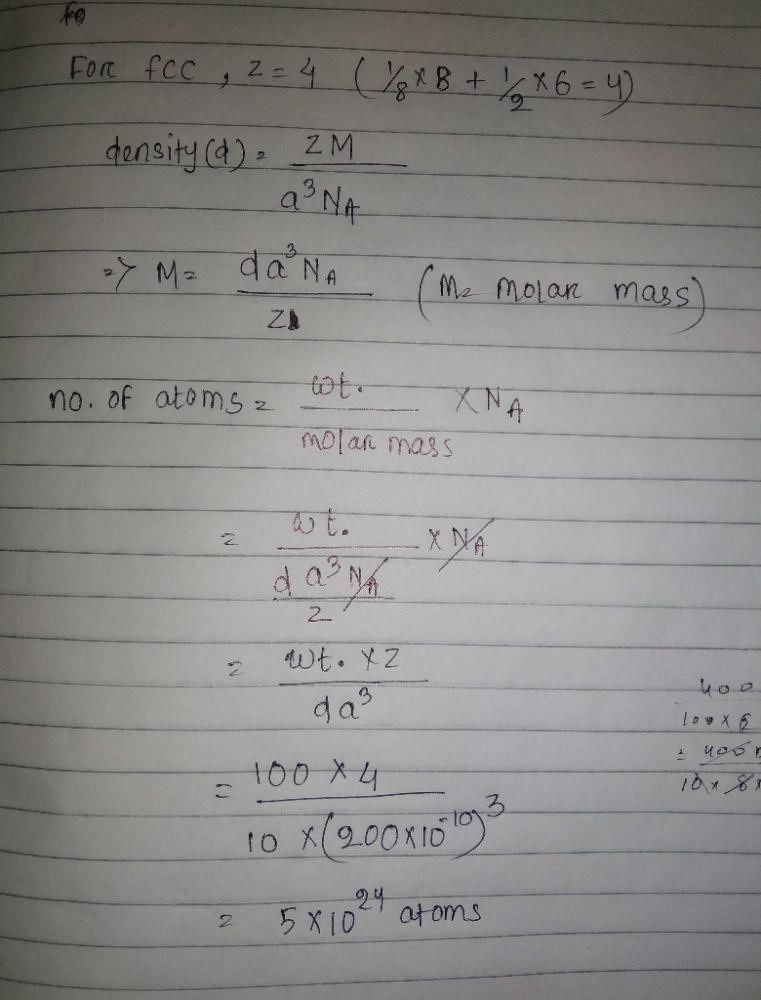 fo
For fcc, z = 4 (1/8 × 8 + 1/2 × 6 = 4)
density(d) = ZM / a³ N_A
=> M = da³ N_A / Z (M = molar mass)
no. of atoms = wt. / molar mass × N_A
= wt. / (d a³ N_A / Z) × N_A
= wt. × Z / da³
400
100 × 8
= 400
10 × 8 ×
= 100 × 4 / 10 × (200 × 10⁻¹⁰)³
= 5 × 10²⁴ atoms